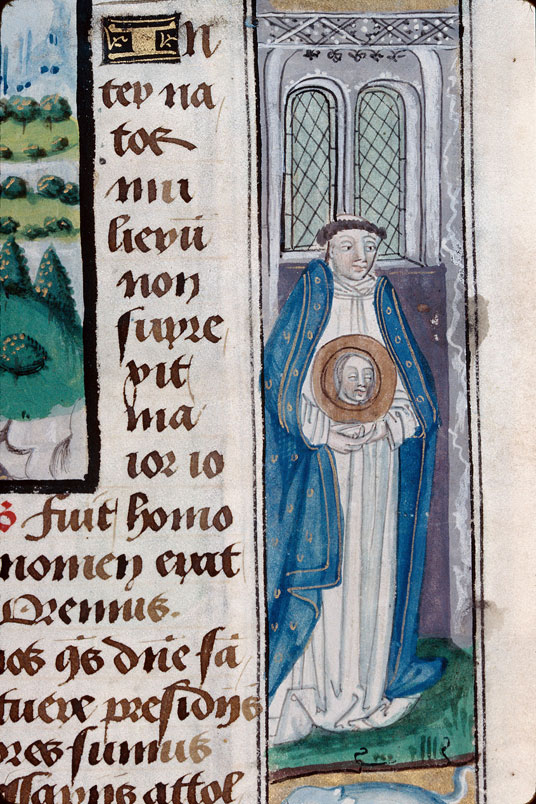 In
ter na
tos
mu
lierū
non
surre
xit
ma
ior io
fuit homo
nomen erat
Oremus.
nos q̄s dn̄e sā
tuere presidijs
ores sumus
attol